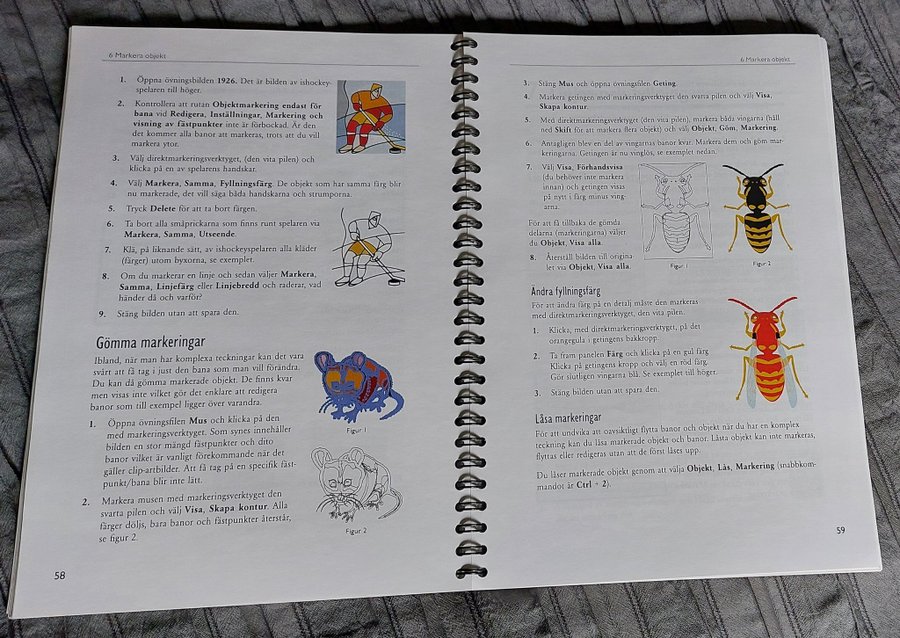 6 Markera objekt
1. Öppna övningsbilden 1926. Det är bilden av ishockey-
spelaren till höger.
2. Kontrollera att rutan Objektmarkering endast för
bana vid Redigera, Inställningar, Markering och
visning av fästpunkter inte är förbockad. Är den
det kommer alla banor att markeras, trots att du vill
markera ytor.
3. Välj direktmarkeringsverktyget, (den vita pilen) och
klicka på en av spelarens handskar.
4. Välj Markera, Samma, Fyllningsfärg. De objekt som har samma färg blir
nu markerade, det vill säga båda handskarna och strumporna.
5. Tryck Delete för att ta bort färgen.
6. Ta bort alla småprickarna som finns runt spelaren via
Markera, Samma, Utseende.
7. Klä, på liknande sätt, av ishockeyspelaren alla kläder
(färger) utom byxorna, se exemplet.
8. Om du markerar en linje och sedan väljer Markera,
Samma, Linjefärg eller Linjebredd och raderar, vad
händer då och varför?
9. Stäng bilden utan att spara den.
Gömma markeringar
Ibland, när man har komplexa teckningar kan det vara
svårt att få tag i just den bana som man vill förändra.
Du kan då gömma markerade objekt. De finns kvar
men visas inte vilket gör det enklare att redigera
banor som till exempel ligger över varandra.
1. Öppna övningsfilen Mus och klicka på den
med markeringsverktyget. Som synes innehåller
bilden en stor mängd fästpunkter och dito
banor vilket är vanligt förekommande när det
gäller clip-artbilder. Att få tag på en specifik fäst-
punkt/bana blir inte lätt.
Figur 1
2. Markera musen med markeringsverktyget den
svarta pilen och välj Visa, Skapa kontur. Alla
färger döljs, bara banor och fästpunkter återstår,
se figur 2.
Figur 2
58
6 Markera objekt
3. Stäng Mus och öppna övningsfilen Geting.
4. Markera getingen med markeringsverktyget den svarta pilen och välj Visa,
Skapa kontur.
5. Med direktmarkeringsverktyget (den vita pilen), markera båda vingarna (håll
ned Skift för att markera flera objekt) och välj Objekt, Göm, Markering.
6. Antagligen blev en del av vingarnas banor kvar. Markera dem och göm mar-
keringarna. Getingen är nu vinglös, se exemplet nedan.
7. Välj Visa, Förhandsvisa
(du behöver inte markera
innan) och getingen visas
på nytt i färg minus ving-
arna.
För att få tillbaka de gömda
delarna (markeringarna) väljer
du Objekt, Visa alla.
8. Återställ bilden till origina-
let via Objekt, Visa alla.
Figur 1
Figur 2
Ändra fyllningsfärg
För att ändra färg på en detalj måste den markeras
med direktmarkeringsverktyget, den vita pilen.
1. Klicka, med direktmarkeringsverktyget, på det
orangegula i getingens bakkropp.
2. Ta fram panelen Färg och klicka på en gul färg.
Klicka på getingens kropp och välj en röd färg.
Gör slutligen vingarna blå. Se exemplet till höger.
3. Stäng bilden utan att spara den.
Låsa markeringar
För att undvika att oavsiktligt flytta banor och objekt när du har en komplex
teckning kan du låsa markerade objekt och banor. Låsta objekt kan inte markeras,
flyttas eller redigeras utan att de först låses upp.
Du låser markerade objekt genom att välja Objekt, Lås, Markering (snabbkom-
mandot är Ctrl + 2).
59